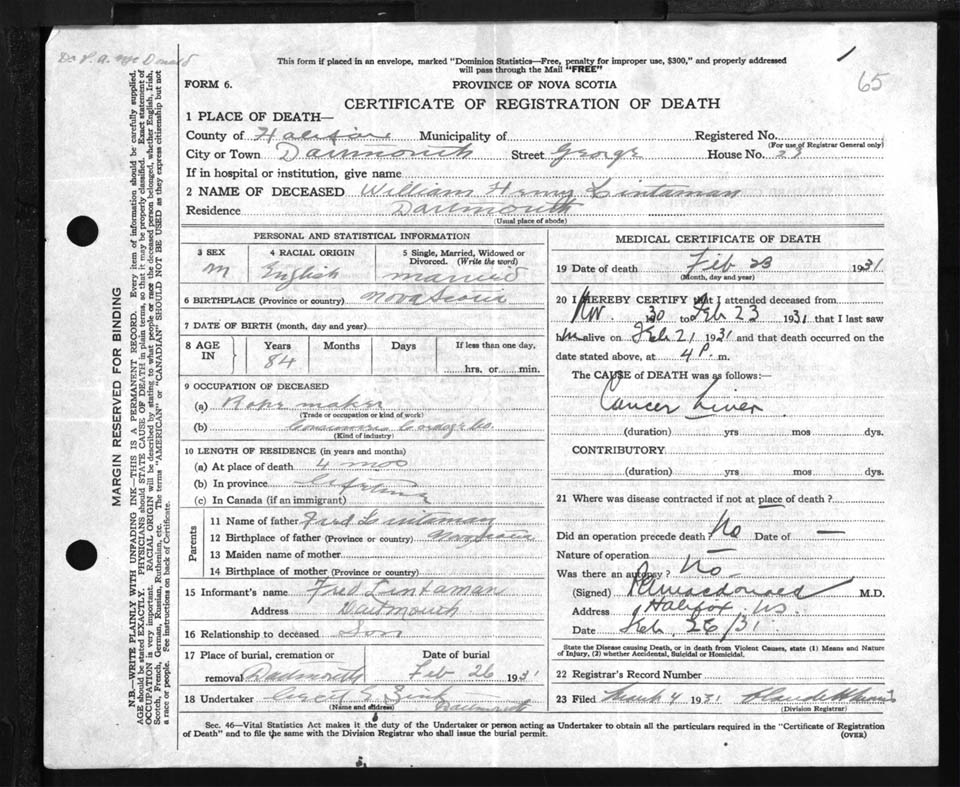 Dr P. A. McDonald
This form if placed in an envelope, marked "Dominion Statistics—Free, penalty for improper use, $300," and properly addressed
will pass through the Mail "FREE"
65
FORM 6.
PROVINCE OF NOVA SCOTIA
CERTIFICATE OF REGISTRATION OF DEATH
1 PLACE OF DEATH—
County of Halifax Municipality of Registered No.
(For use of Registrar General only)
City or Town Dartmouth Street George House No. 23
If in hospital or institution, give name
2 NAME OF DECEASED William Henry Lintaman
Residence Dartmouth
(Usual place of abode)
PERSONAL AND STATISTICAL INFORMATION
3 SEX
M
4 RACIAL ORIGIN
English
5 Single, Married, Widowed or
Divorced. (Write the word)
married
6 BIRTHPLACE (Province or country) Nova Scotia
7 DATE OF BIRTH (month, day and year)
8 AGE
IN
Years
84
Months
Days
If less than one day.
hrs. or min.
9 OCCUPATION OF DECEASED
(a) Rope maker
(Trade or occupation or kind of work)
(b) Consumers Cordage Co.
(Kind of industry)
10 LENGTH OF RESIDENCE (in years and months)
(a) At place of death 4 mos
(b) In province Lifetime
(c) In Canada (if an immigrant)
Parents
11 Name of father Fred Lintaman
12 Birthplace of father (Province or country) Nova Scotia
13 Maiden name of mother
14 Birthplace of mother (Province or country)
15 Informant's name Fred Lintaman
Address Dartmouth
16 Relationship to deceased Son
17 Place of burial, cremation or
removal Dartmouth
Date of burial
Feb 26 1931
18 Undertaker Zink
(Name and address) Dartmouth
MEDICAL CERTIFICATE OF DEATH
19 Date of death Feb 23 1931
(Month, day and year)
20 I HEREBY CERTIFY that I attended deceased from
Nov. 30 to Feb 23 1931 that I last saw
him alive on Feb 21 1931 and that death occurred on the
date stated above, at 4 P. m.
The CAUSE of DEATH was as follows:—
Cancer Liver
(duration) yrs mos dys.
CONTRIBUTORY
(duration) yrs mos dys.
21 Where was disease contracted if not at place of death ?
Did an operation precede death No Date of —
Nature of operation —
Was there an autopsy ? No
(Signed) P A Macdonald M.D.
Address Halifax NS
Date Feb, 26/31
State the Disease causing Death, or in death from Violent Causes, state (1) Means and Nature
of Injury, (2) whether Accidental, Suicidal or Homicidal.
22 Registrar's Record Number
23 Filed March 4 1931
(Division Registrar)
Sec. 46—Vital Statistics Act makes it the duty of the Undertaker or person acting as Undertaker to obtain all the particulars required in the "Certificate of Registration
of Death" and to file the same with the Division Registrar who shall issue the burial permit.
(OVER)
MARGIN RESERVED FOR BINDING
N.B.—WRITE PLAINLY WITH UNFADING INK—THIS IS A PERMANENT RECORD. Every item of information should be carefully supplied.
AGE should be stated EXACTLY. PHYSICIANS should STATE CAUSE OF DEATH in plain terms, so that it may be properly classified. Exact statement of
OCCUPATION is very important. RACIAL ORIGIN will be described by stating to what people or race the deceased person belonged, whether English, Irish,
Scotch, French, German, Russian, Ruthenian, etc. The terms "AMERICAN" or "CANADIAN" SHOULD NOT BE USED as they express citizenship but not
a race or people. See instructions on back of Certificate.